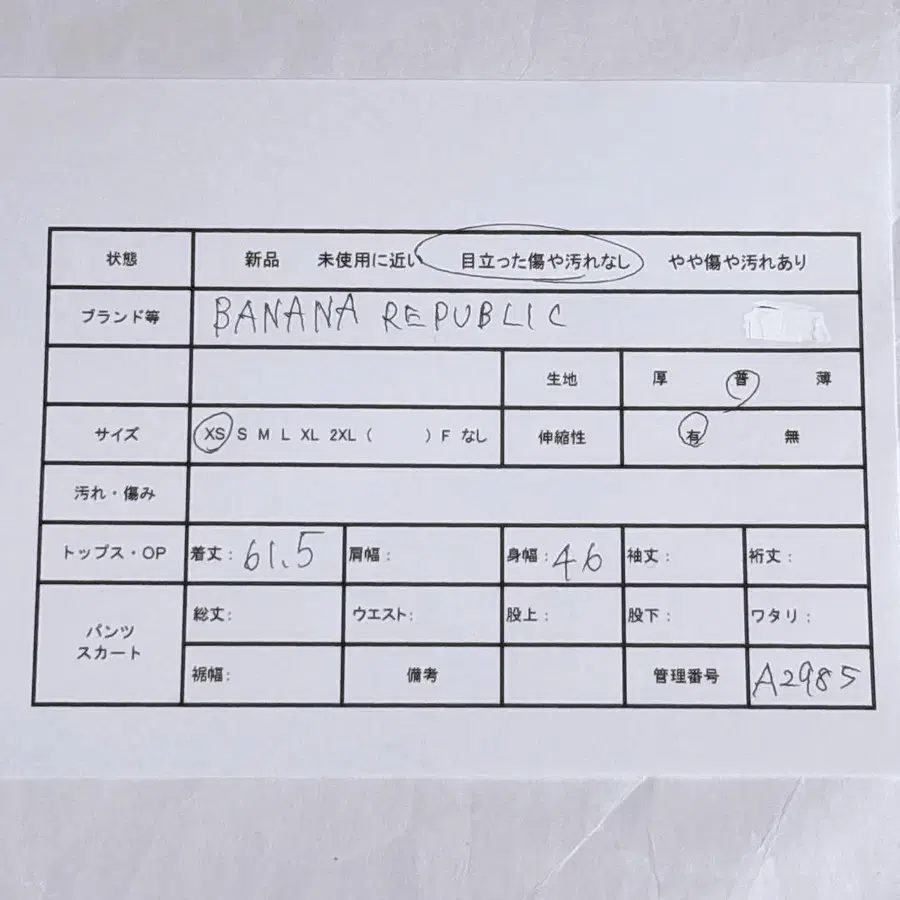 状態 新品 未使用に近い 目立った傷や汚れなし やや傷や汚れあり
ブランド等 BANANA REPUBLIC
生地 厚 普 薄
サイズ XS S M L XL 2XL ( ) F なし 伸縮性 有 無
汚れ・傷み
トップス・OP 着丈: 61.5 肩幅: 身幅: 46 袖丈: 裄丈:
パンツ スカート 総丈: ウエスト: 股上: 股下: ワタリ:
裾幅: 備考 管理番号 A2985